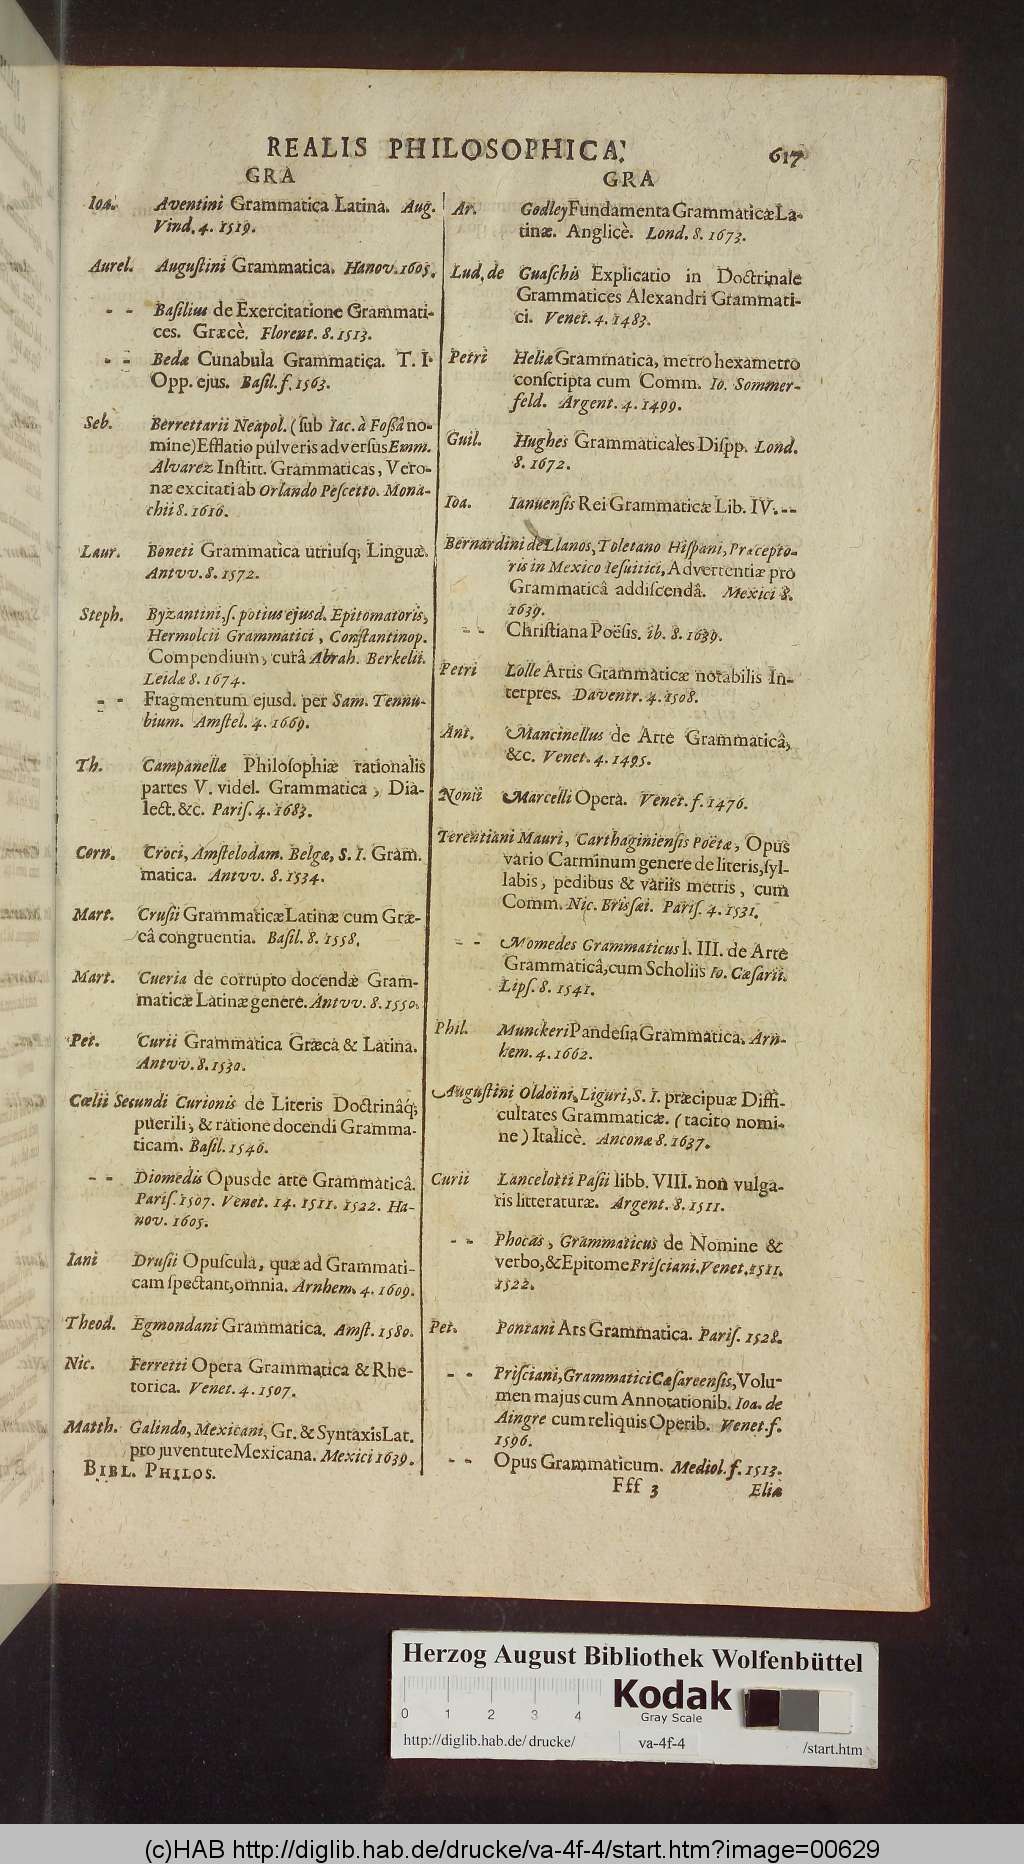 REALIS PHILOSOPHICA. 617
GRA
Ioa. Aventini Grammatica Latina. Aug.
Vind. 4. 1519.
Aurel. Augustini Grammatica. Hanov. 1605.
- - Basilius de Exercitatione Grammati-
ces. Græcè. Florent. 8. 1513.
- - Bedæ Cunabula Grammatica. T. I.
Opp. ejus. Basil. f. 1563.
Seb. Berrettarii Neapol. (sub Iac. à Foßâ no-
mine) Efflatio pulveris adversus Emm.
Alvarez Institt. Grammaticas, Vero-
næ excitati ab Orlando Pescetto. Mona-
chii 8. 1616.
Laur. Boneti Grammatica utriusq; Linguæ.
Antvv. 8. 1572.
Steph. Byzantini, s. potius ejusd. Epitomatoris,
Hermolcii Grammatici, Constantinop.
Compendium, curâ Abrah. Berkelii.
Leidæ 8. 1674.
- - Fragmentum ejusd. per Sam. Tennu-
bium. Amstel. 4. 1669.
Th. Campanellæ Philosophiæ rationalis
partes V. videl. Grammatica, Dia-
lect. &c. Paris. 4. 1683.
Corn. Croci, Amstelodam. Belgæ, S. I. Gram.
matica. Antvv. 8. 1534.
Mart. Crusii Grammaticæ Latinæ cum Græ-
câ congruentia. Basil. 8. 1558.
Mart. Cueria de corrupto docendæ Gram-
maticæ Latinæ genere. Antvv. 8. 1550.
Pet. Curii Grammatica Græca & Latina.
Antvv. 8. 1530.
Cœlii Secundi Curionis de Literis Doctrinâq;
puerili, & ratione docendi Gramma-
ticam. Basil. 1546.
- - Diomedis Opus de arte Grammaticâ.
Paris. 1507. Venet. 14. 1511. 1522. Ha-
nov. 1605.
Iani Drusii Opuscula, quæ ad Grammati-
cam spectant, omnia. Arnhem. 4. 1609.
Theod. Egmondani Grammatica. Amst. 1580.
Nic. Ferretti Opera Grammatica & Rhe-
torica. Venet. 4. 1507.
Matth. Galindo, Mexicani, Gr. & Syntaxis Lat.
pro juventute Mexicana. Mexici 1639.
BIBL. PHILOS.
GRA
Ar. Godley Fundamenta Grammaticæ La-
tinæ. Anglicè. Lond. 8. 1673.
Lud. de Guaschis Explicatio in Doctrinale
Grammatices Alexandri Grammati-
ci. Venet. 4. 1483.
Petri Heliæ Grammatica, metro hexametro
conscripta cum Comm. Io. Sommer-
feld. Argent. 4. 1499.
Guil. Hughes Grammaticales Dispp. Lond.
8. 1672.
Ioa. Ianuensis Rei Grammaticæ Lib. IV. - -
Bernardini de Llanos, Toletano Hispani, Præcepto-
ris in Mexico Iesuitici, Advertentiæ pro
Grammaticâ addiscendâ. Mexici 8.
1639.
- - Christiana Poësis. ib. 8. 1639.
Petri Lolle Artis Grammaticæ notabilis In-
terpres. Daventr. 4. 1508.
Ant. Mancinellus de Arte Grammaticâ,
&c. Venet. 4. 1495.
Nonii Marcelli Opera. Venet. f. 1476.
Terentiani Mauri, Carthaginiensis Poëtæ, Opus
vario Carminum genere de literis, syl-
labis, pedibus & variis metris, cum
Comm. Nic. Brissæi. Paris. 4. 1531.
- - Momedes Grammaticus l. III. de Arte
Grammaticâ, cum Scholiis Io. Cæsarii.
Lips. 8. 1541.
Phil. Munckeri Pandesia Grammatica. Arn-
hem. 4. 1662.
Augustini Oldoini, Liguri, S. I. præcipuæ Diffi-
cultates Grammaticæ. (tacito nomi-
ne) Italicè. Anconæ 8. 1637.
Curii Lancelotti Pasii libb. VIII. non vulga-
ris litteraturæ. Argent. 8. 1511.
- - Phocas, Grammaticus de Nomine &
verbo, & Epitome Prisciani. Venet. 1511.
1522.
Pet. Pontani Ars Grammatica. Paris. 1528.
- - Prisciani, Grammatici Cæsareensis, Volu-
men majus cum Annotationib. Ioa. de
Aingre cum reliquis Operib. Venet. f.
1596.
- - Opus Grammaticum. Mediol. f. 1513.
Fff 3 Eliæ
Herzog August Bibliothek Wolfenbüttel
Kodak
Gray Scale
0 1 2 3 4
http://diglib.hab.de/drucke/ va-4f-4 /start.htm
(c)HAB http://diglib.hab.de/drucke/va-4f-4/start.htm?image=00629